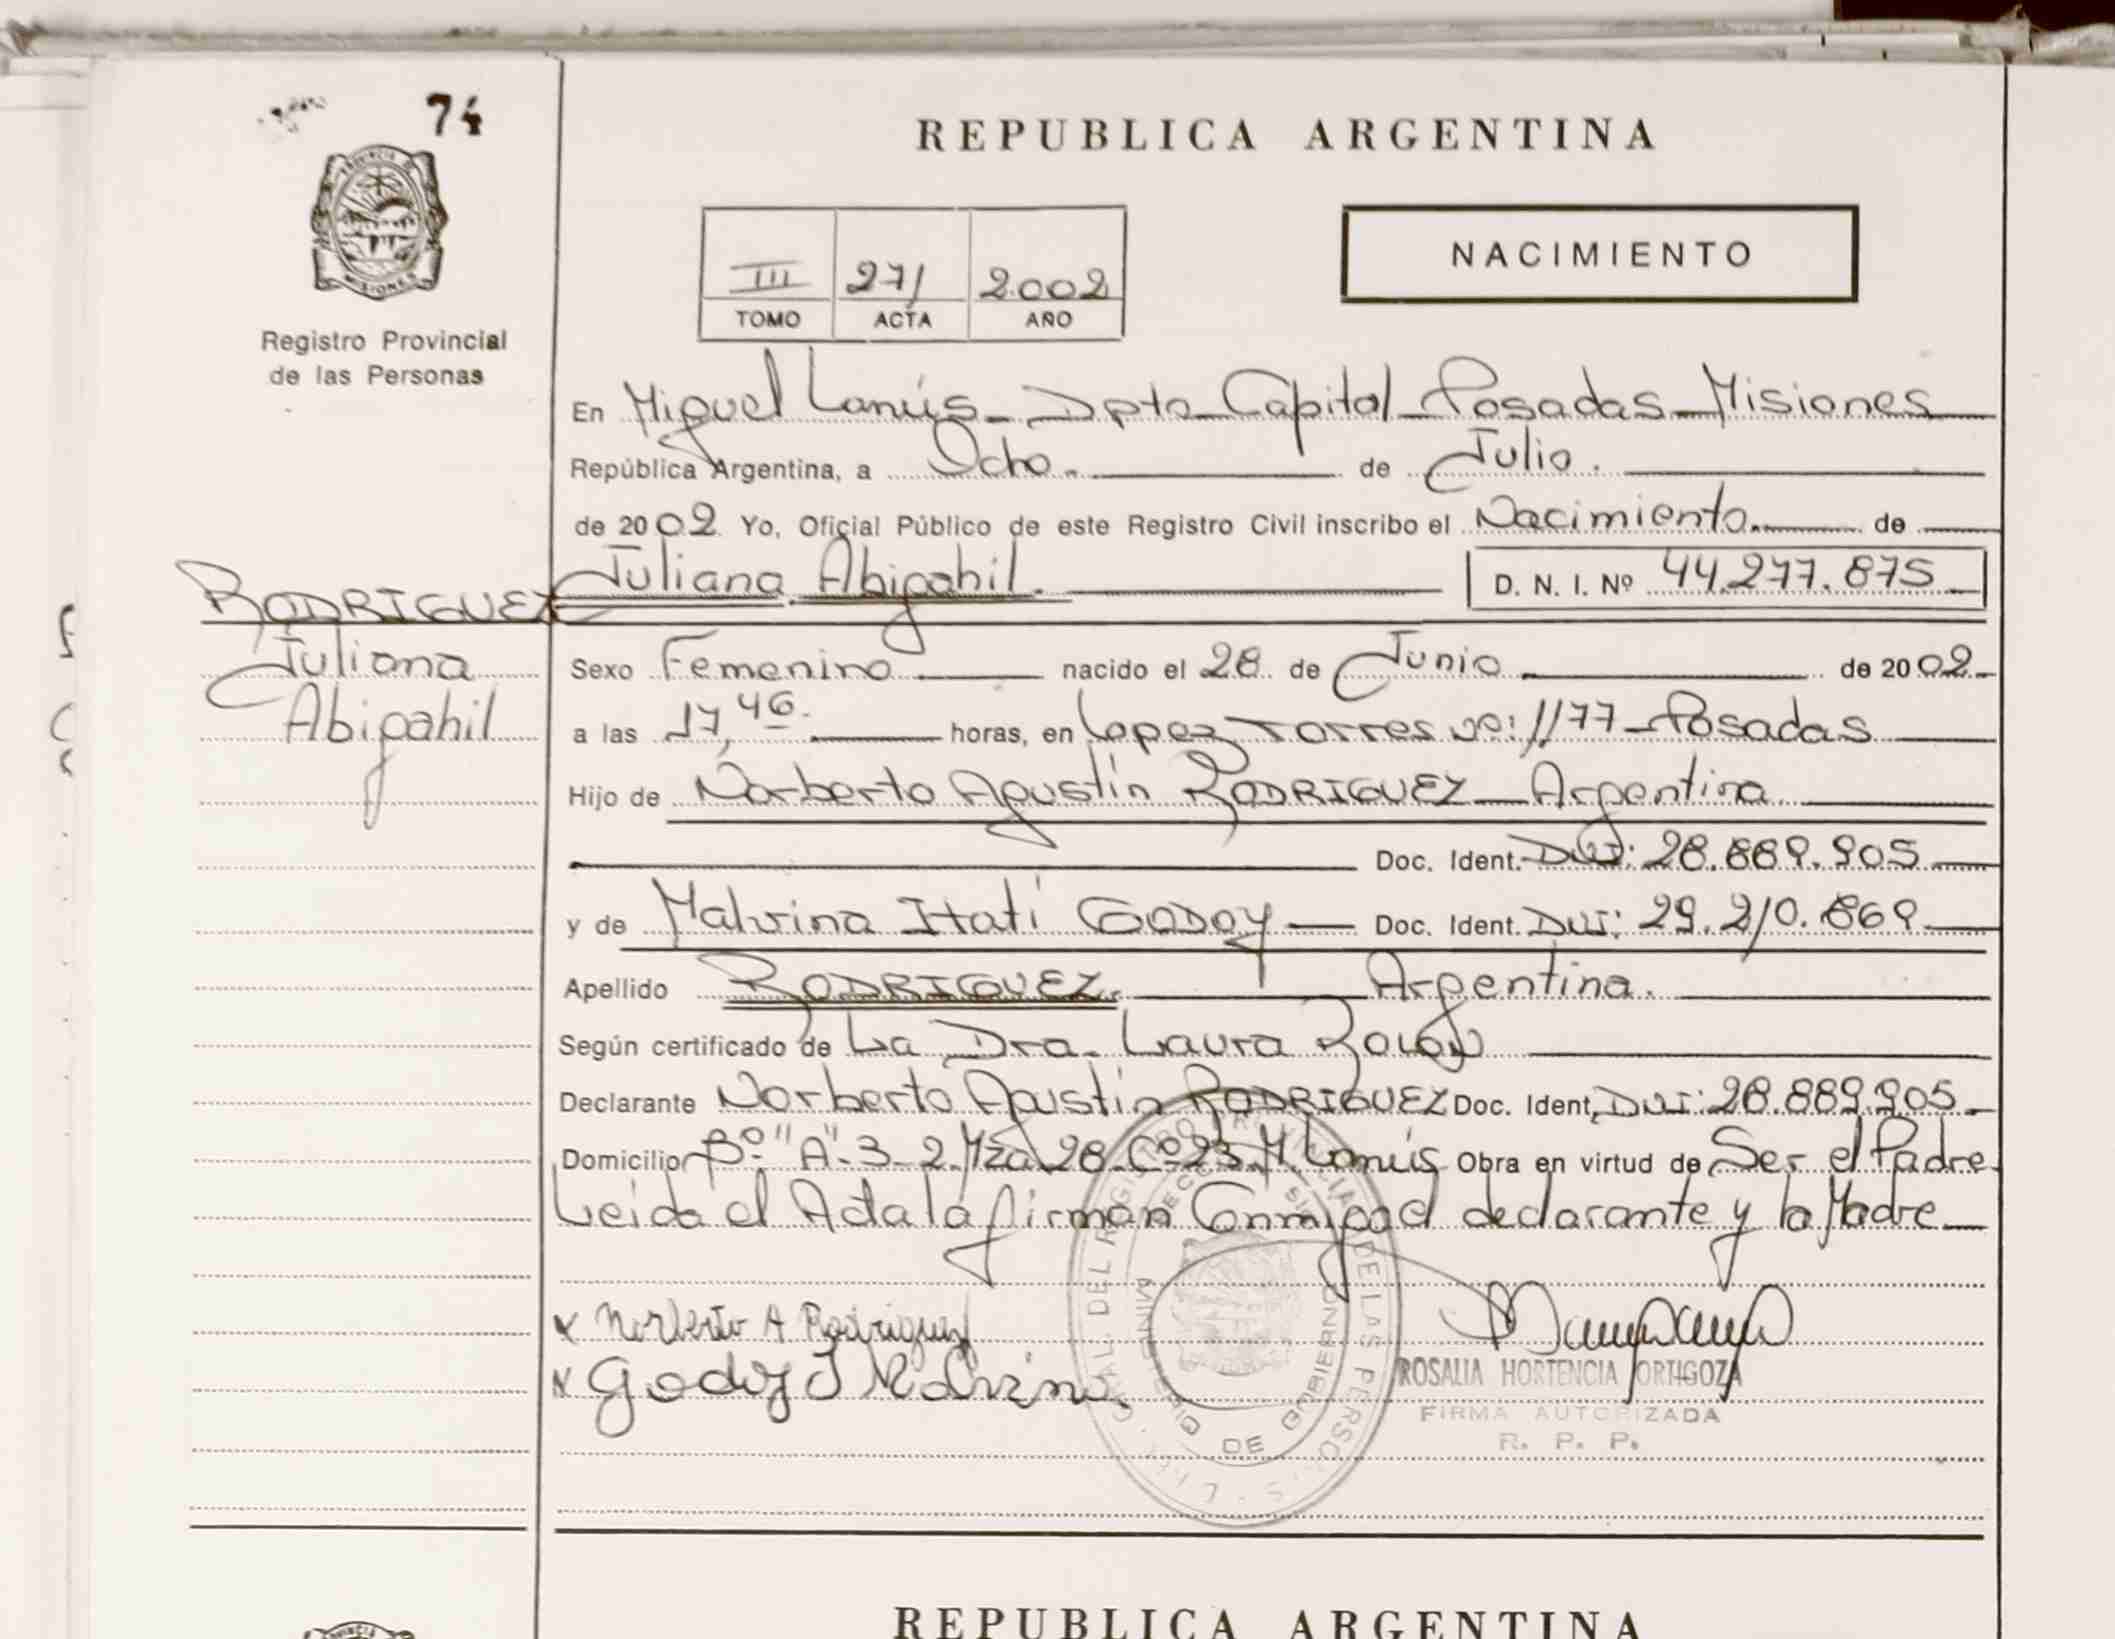 74
PROVINCIA DE
MISIONES
Registro Provincial
de las Personas
REPUBLICA ARGENTINA
III 271 2002
TOMO ACTA AÑO
NACIMIENTO
En Miguel Lanús - Dpto Capital - Posadas - Misiones
República Argentina, a Ocho. de Julio.
de 2002 Yo, Oficial Público de este Registro Civil inscribo el Nacimiento. de
Juliana Abigahil. D. N. I. Nº 44.277.875
RODRIGUEZ
Juliana
Abigahil
Sexo Femenino nacido el 28 de Junio de 2002
a las 17,46. horas, en Lopez Torres Nº: 1177 - Posadas
Hijo de Norberto Agustín RODRIGUEZ - Argentina
Doc. Ident. DNI: 28.889.905
y de Malvina Itatí GODOY Doc. Ident. DNI: 29.210.869
Apellido RODRIGUEZ. Argentina.
Según certificado de La Dra. Laura
Declarante Norberto Agustín RODRIGUEZ Doc. Ident. DNI: 28.889.905
Domicilio Bº "A"-3-2. Mza 28. Cº 23. M. Lanús Obra en virtud de Ser el Padre
Leida el Acta la firman Conmigo el declarante y la Madre
x Norberto A Rodriguez
x Godoy I Malvina.
ROSALIA HORTENCIA ORTIGOZA
FIRMA AUTORIZADA
R. P. P.
GRAL. DEL REGISTRO PROVINCIAL DE LAS PERSONAS
DE GOBIERNO
REPUBLICA ARGENTINA